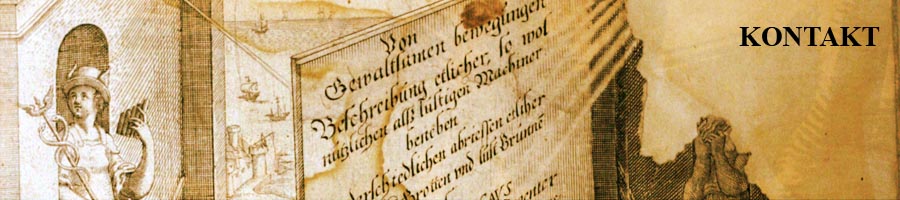 KONTAKT
Von
Gewaltsamen bewegungen
Beschreibung etlicher, so wol
nützlichen alß lustigen Machiner
beneben
derschiedlichen abriessen etlicher
Grotten vnd lust Brunnē
CAVS